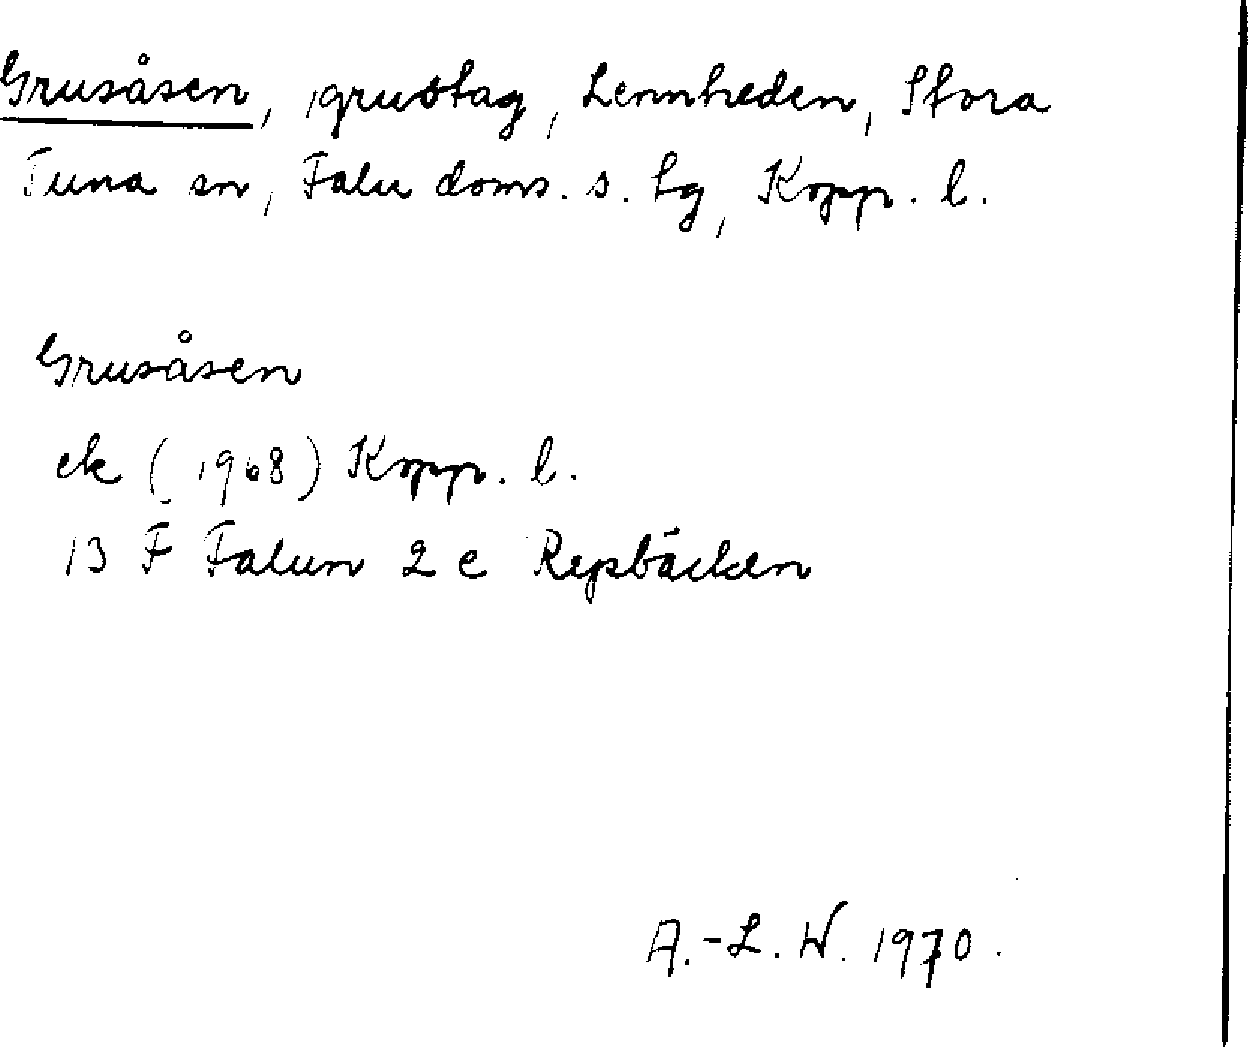 Grusåsen, grustag, Lennheden, Stora
Tuna sn, Falu doms. s. tg, Kopp. l.
Grusåsen
ek (1968) Kopp. l.
13 F Falun 2 c Repsbäcken
A.-L. W. 1970.